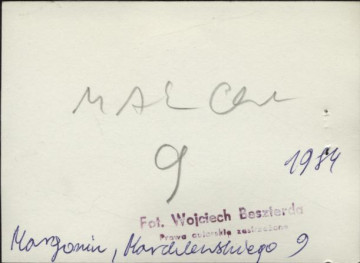 9
1984
Fot. Wojciech Beszterda
Prawa autorskie zastrzeżone
Margonin, Kardelewskiego 9